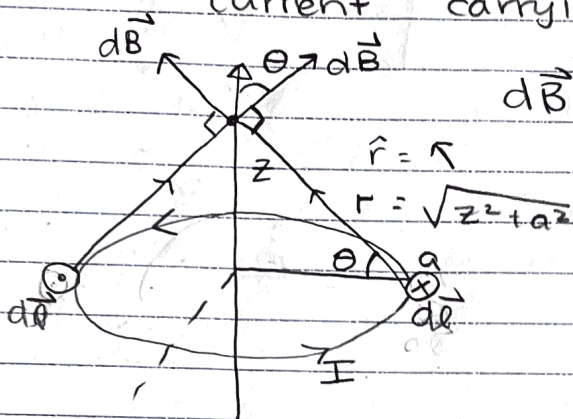 current carryi
dB⃗ θ dB⃗
dB⃗
r̂ = ↖
z r = √z² + a²
θ a
dl⃗ dl⃗
I